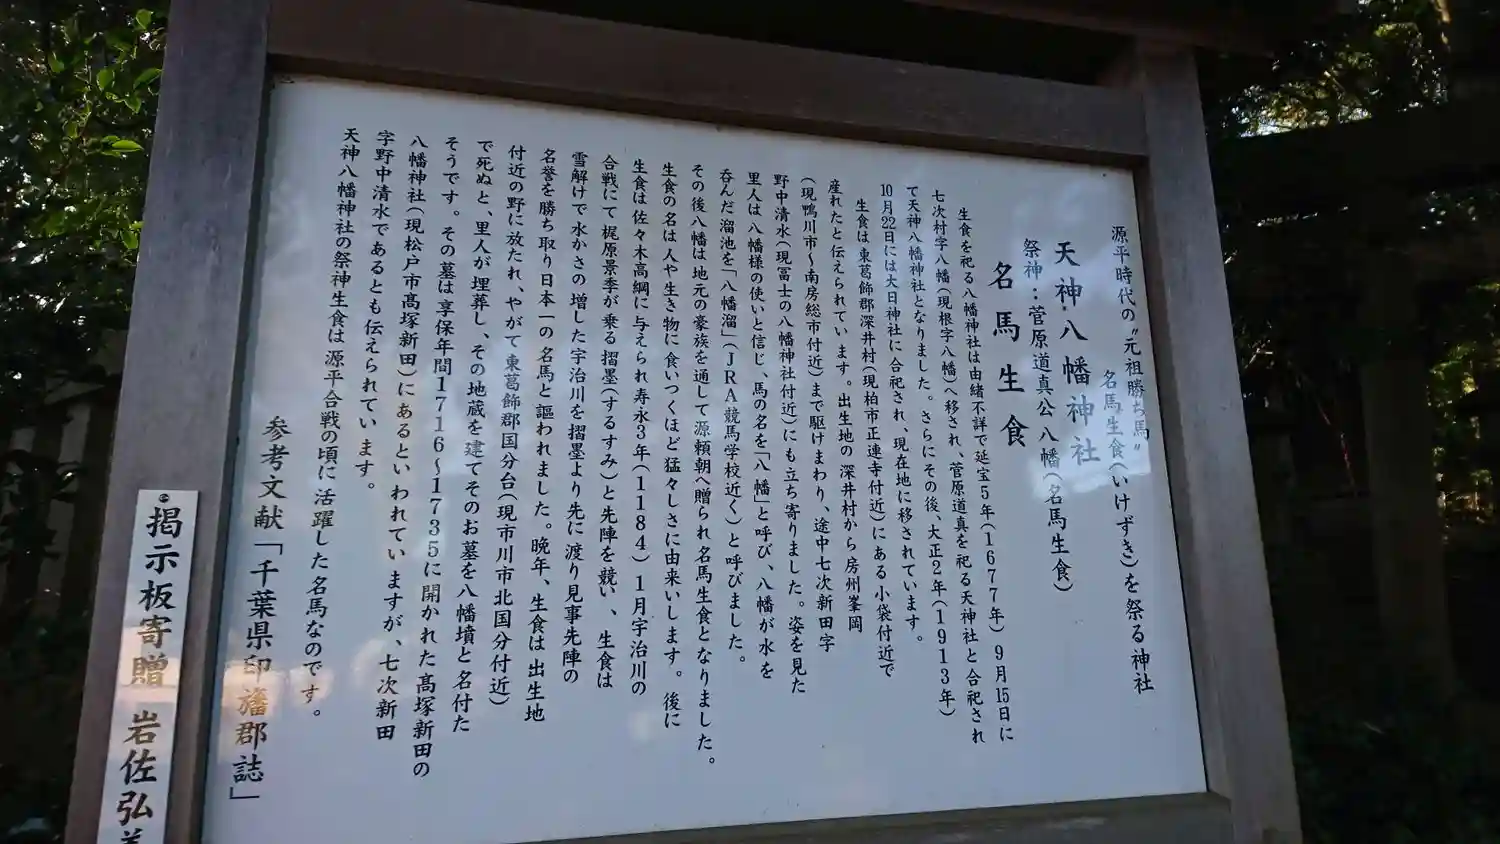 源平時代の〝元祖勝ち馬〟
名馬生食(いけずき)を祭る神社
天神・八幡神社
祭神：菅原道真公 八幡(名馬生食)
名馬生食
生食を祀る八幡神社は由緒不詳で延宝5年(1677年)9月15日に
七次村字八幡(現根字八幡)へ移され、菅原道真を祀る天神社と合祀され
て天神八幡神社となりました。さらにその後、大正2年(1913年)
10月22日には大日神社に合祀され、現在地に移されています。
生食は東葛飾郡深井村(現柏市正連寺付近)にある小袋付近で
産れたと伝えられています。出生地の深井村から房州峯岡
(現鴨川市～南房総市付近)まで駆けまわり、途中七次新田字
野中清水(現冨士の八幡神社付近)にも立ち寄りました。姿を見た
里人は八幡様の使いと信じ、馬の名を「八幡」と呼び、八幡が水を
呑んだ溜池を「八幡溜」(JRA競馬学校近く)と呼びました。
その後八幡は地元の豪族を通して源頼朝へ贈られ名馬生食となりました。
生食の名は人や生き物に食いつくほど猛々しさに由来いします。後に
生食は佐々木高綱に与えられ寿永3年(1184)1月宇治川の
合戦にて梶原景季が乗る摺墨(するすみ)と先陣を競い、生食は
雪解けで水かさの増した宇治川を摺墨より先に渡り見事先陣の
名誉を勝ち取り日本一の名馬と謳われました。晩年、生食は出生地
付近の野に放たれ、やがて東葛飾郡国分台(現市川市北国分付近)
で死ぬと、里人が埋葬し、その地蔵を建てそのお墓を八幡墳と名付た
そうです。その墓は享保年間1716～1735に開かれた高塚新田の
八幡神社(現松戸市高塚新田)にあるといわれていますが、七次新田
字野中清水であるとも伝えられています。
天神八幡神社の祭神生食は源平合戦の頃に活躍した名馬なのです。
参考文献「千葉県印旛郡誌」
掲示板寄贈 岩佐弘